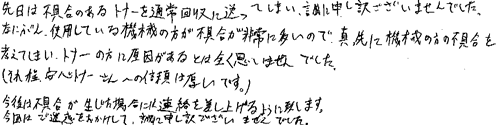 先日は不具合のあるトナーを通常回収に送ってしまい、誠に申し訳ございませんでした。
なにぶん、使用している機械の方が不具合が非常に多いので、真先に機械の方の不具合を
考えてしまい、トナーの方に原因があるとは全く思いませんでした。
(それ程、トナーさんへの信頼は厚いです。)
今後は不具合が生じた場合には連絡を差し上げるように致します。
今回はご迷惑をおかけして、誠に申し訳ございませんでした。